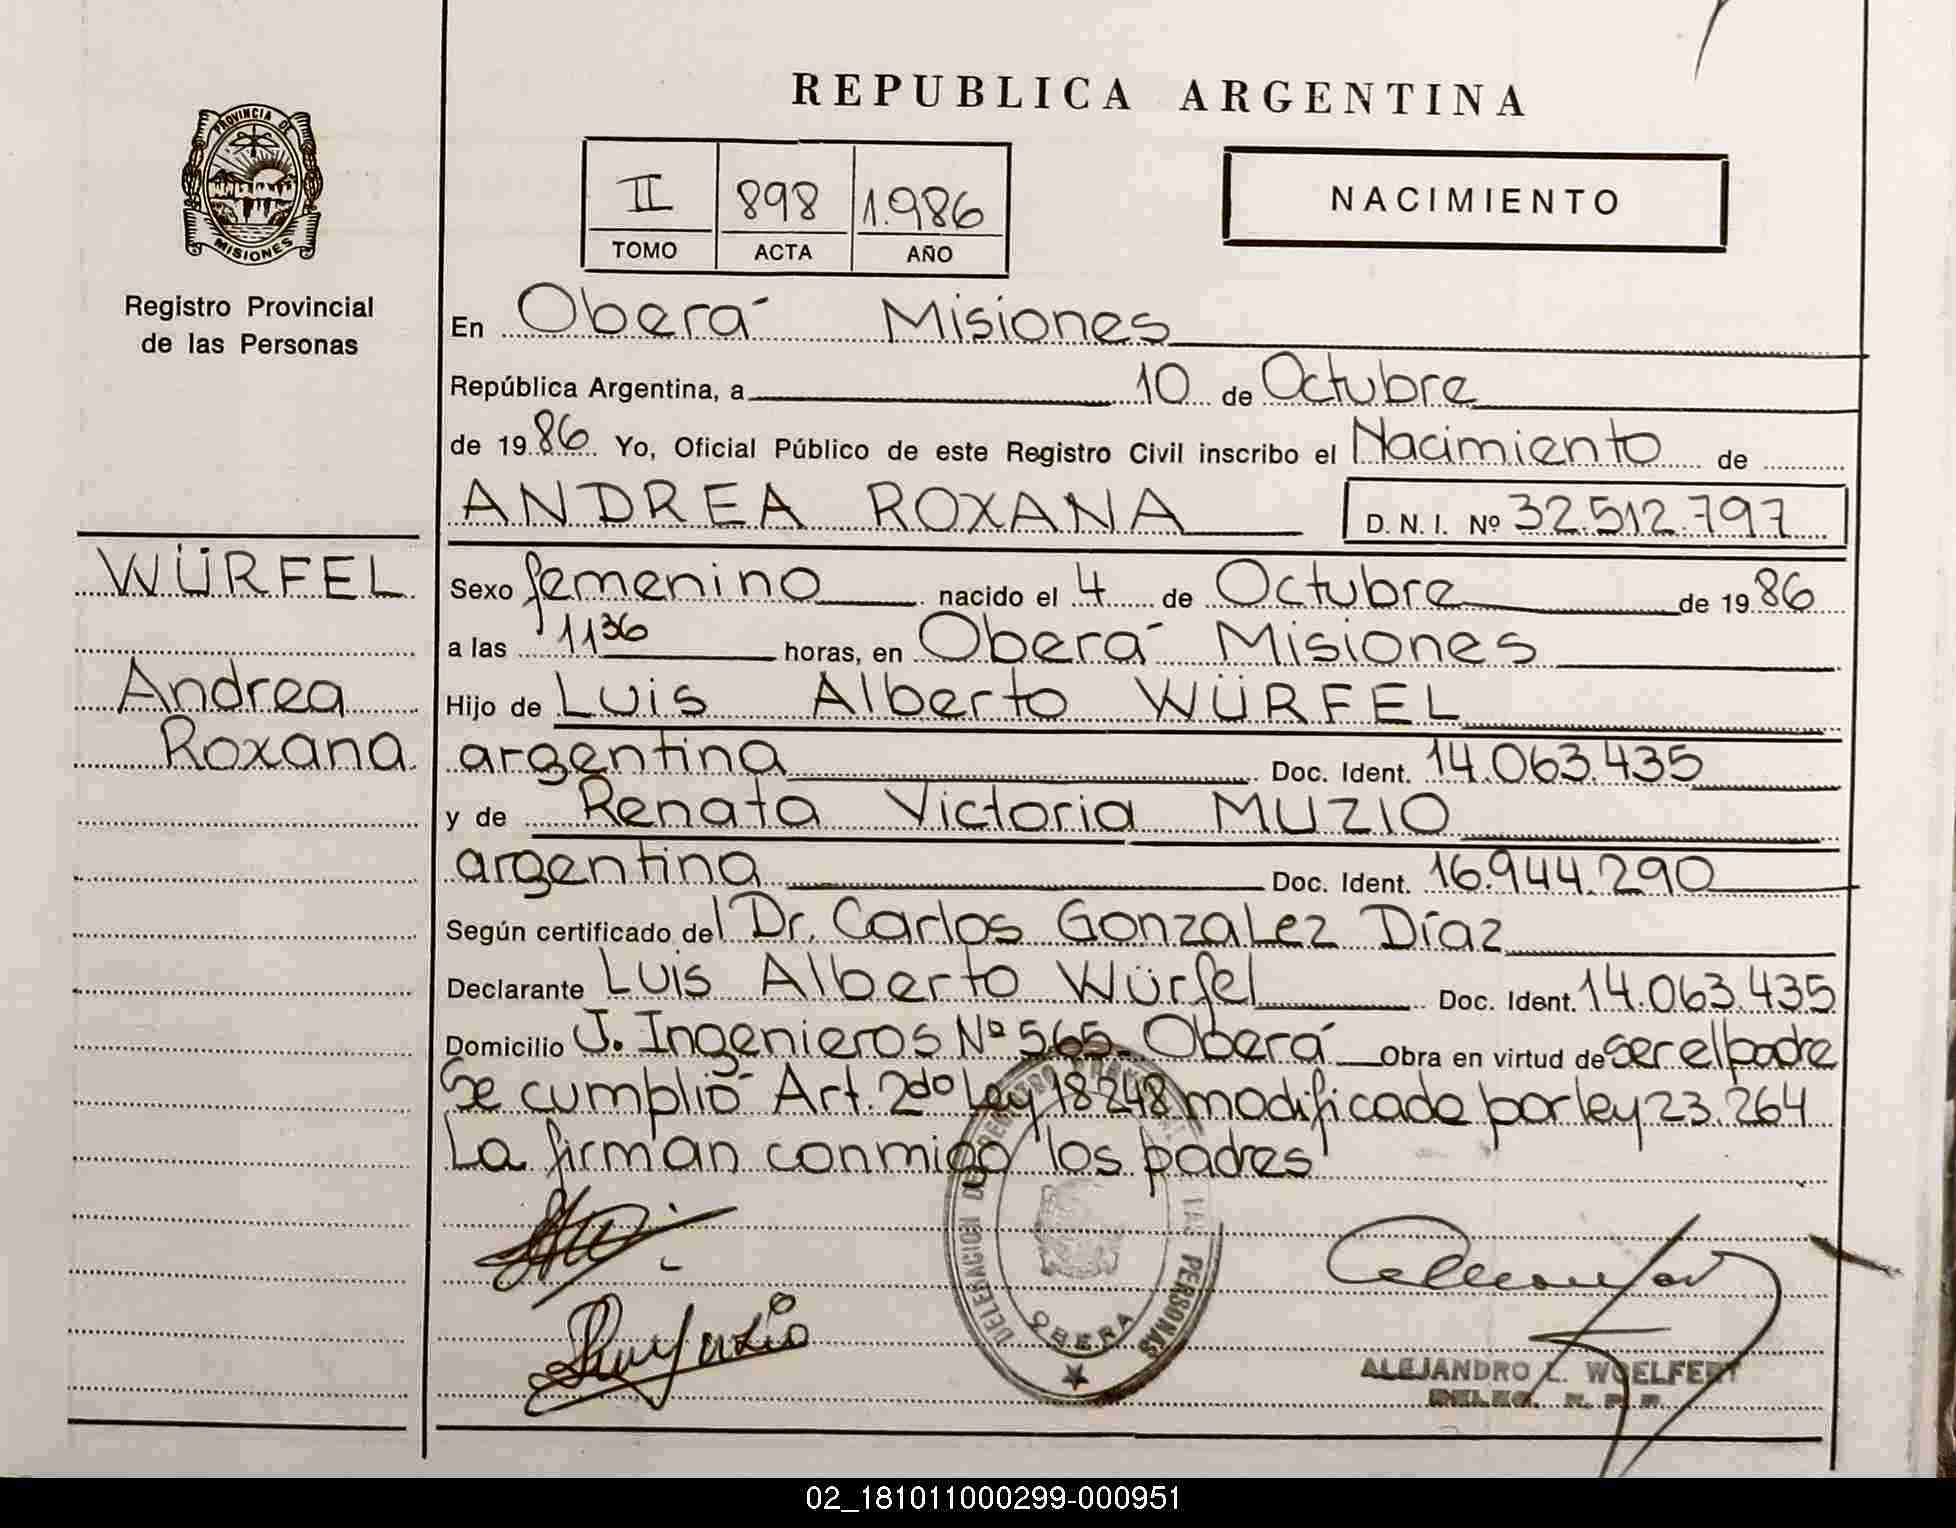 REPUBLICA ARGENTINA
PROVINCIA DE
MISIONES
Registro Provincial
de las Personas
II 898 1.986
TOMO ACTA AÑO
NACIMIENTO
En Oberá Misiones
República Argentina, a 10 de Octubre
de 1986 Yo, Oficial Público de este Registro Civil inscribo el Nacimiento de
ANDREA ROXANA D. N. I. Nº 32.512.797
WÜRFEL
Andrea
Roxana
Sexo femenino nacido el 4 de Octubre de 1986
a las 1136 horas, en Oberá Misiones
Hijo de Luis Alberto WÜRFEL
argentina Doc. Ident. 14.063.435
y de Renata Victoria MUZIO
argentina Doc. Ident. 16.944.290
Según certificado del Dr. Carlos GonzaLez Díaz
Declarante Luis Alberto Würfel Doc. Ident. 14.063.435
Domicilio J. Ingenieros Nº 565. Oberá Obra en virtud de ser el padre
Se cumplió Art. 2do Ley 18248 modificado por ley 23.264
La firman conmigo los padres
DELEGACION DEL REGISTRO PROVINCIAL DE LAS PERSONAS
OBERA
ALEJANDRO L. WOELFERT
DELEG. R. P. P.
02_181011000299-000951